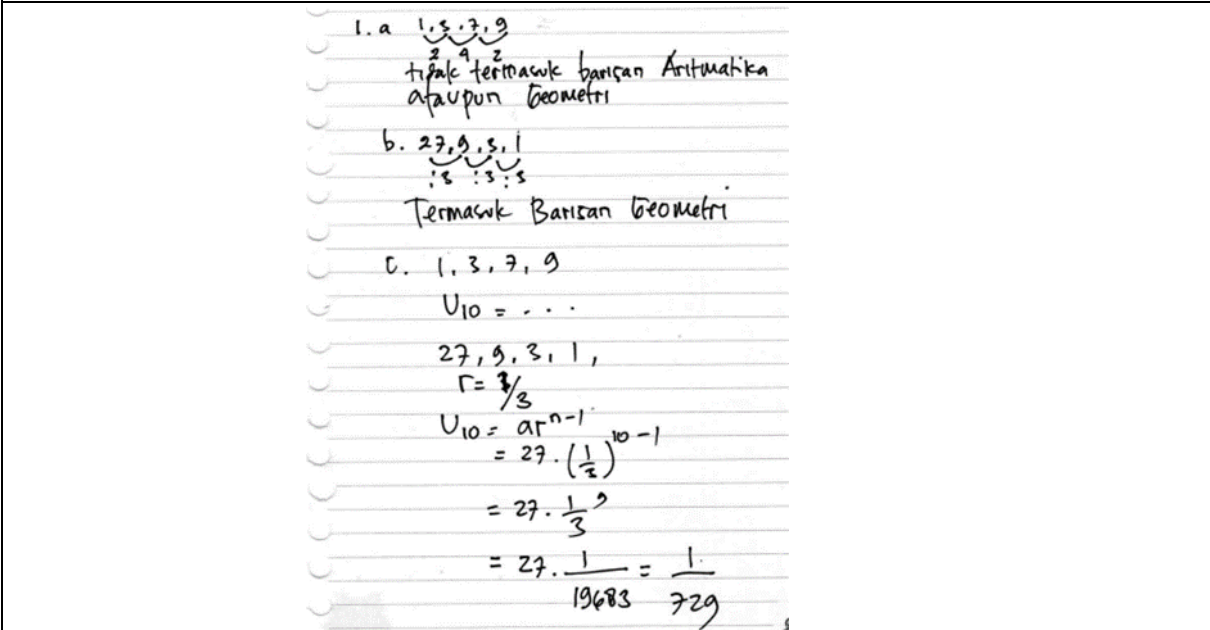 1. a 1, 3, 7, 9
2 4 2
tidak termasuk barisan Aritmatika
ataupun Geometri
b. 27, 9, 3, 1
:3 :3 :3
Termasuk Barisan Geometri
c. 1, 3, 7, 9
U10 = . . .
27, 9, 3, 1,
r = 1/3
U10 = ar^n-1
= 27 . (1/3)^10-1
= 27 . 1/3^9
= 27 . 1/19683 = 1/729